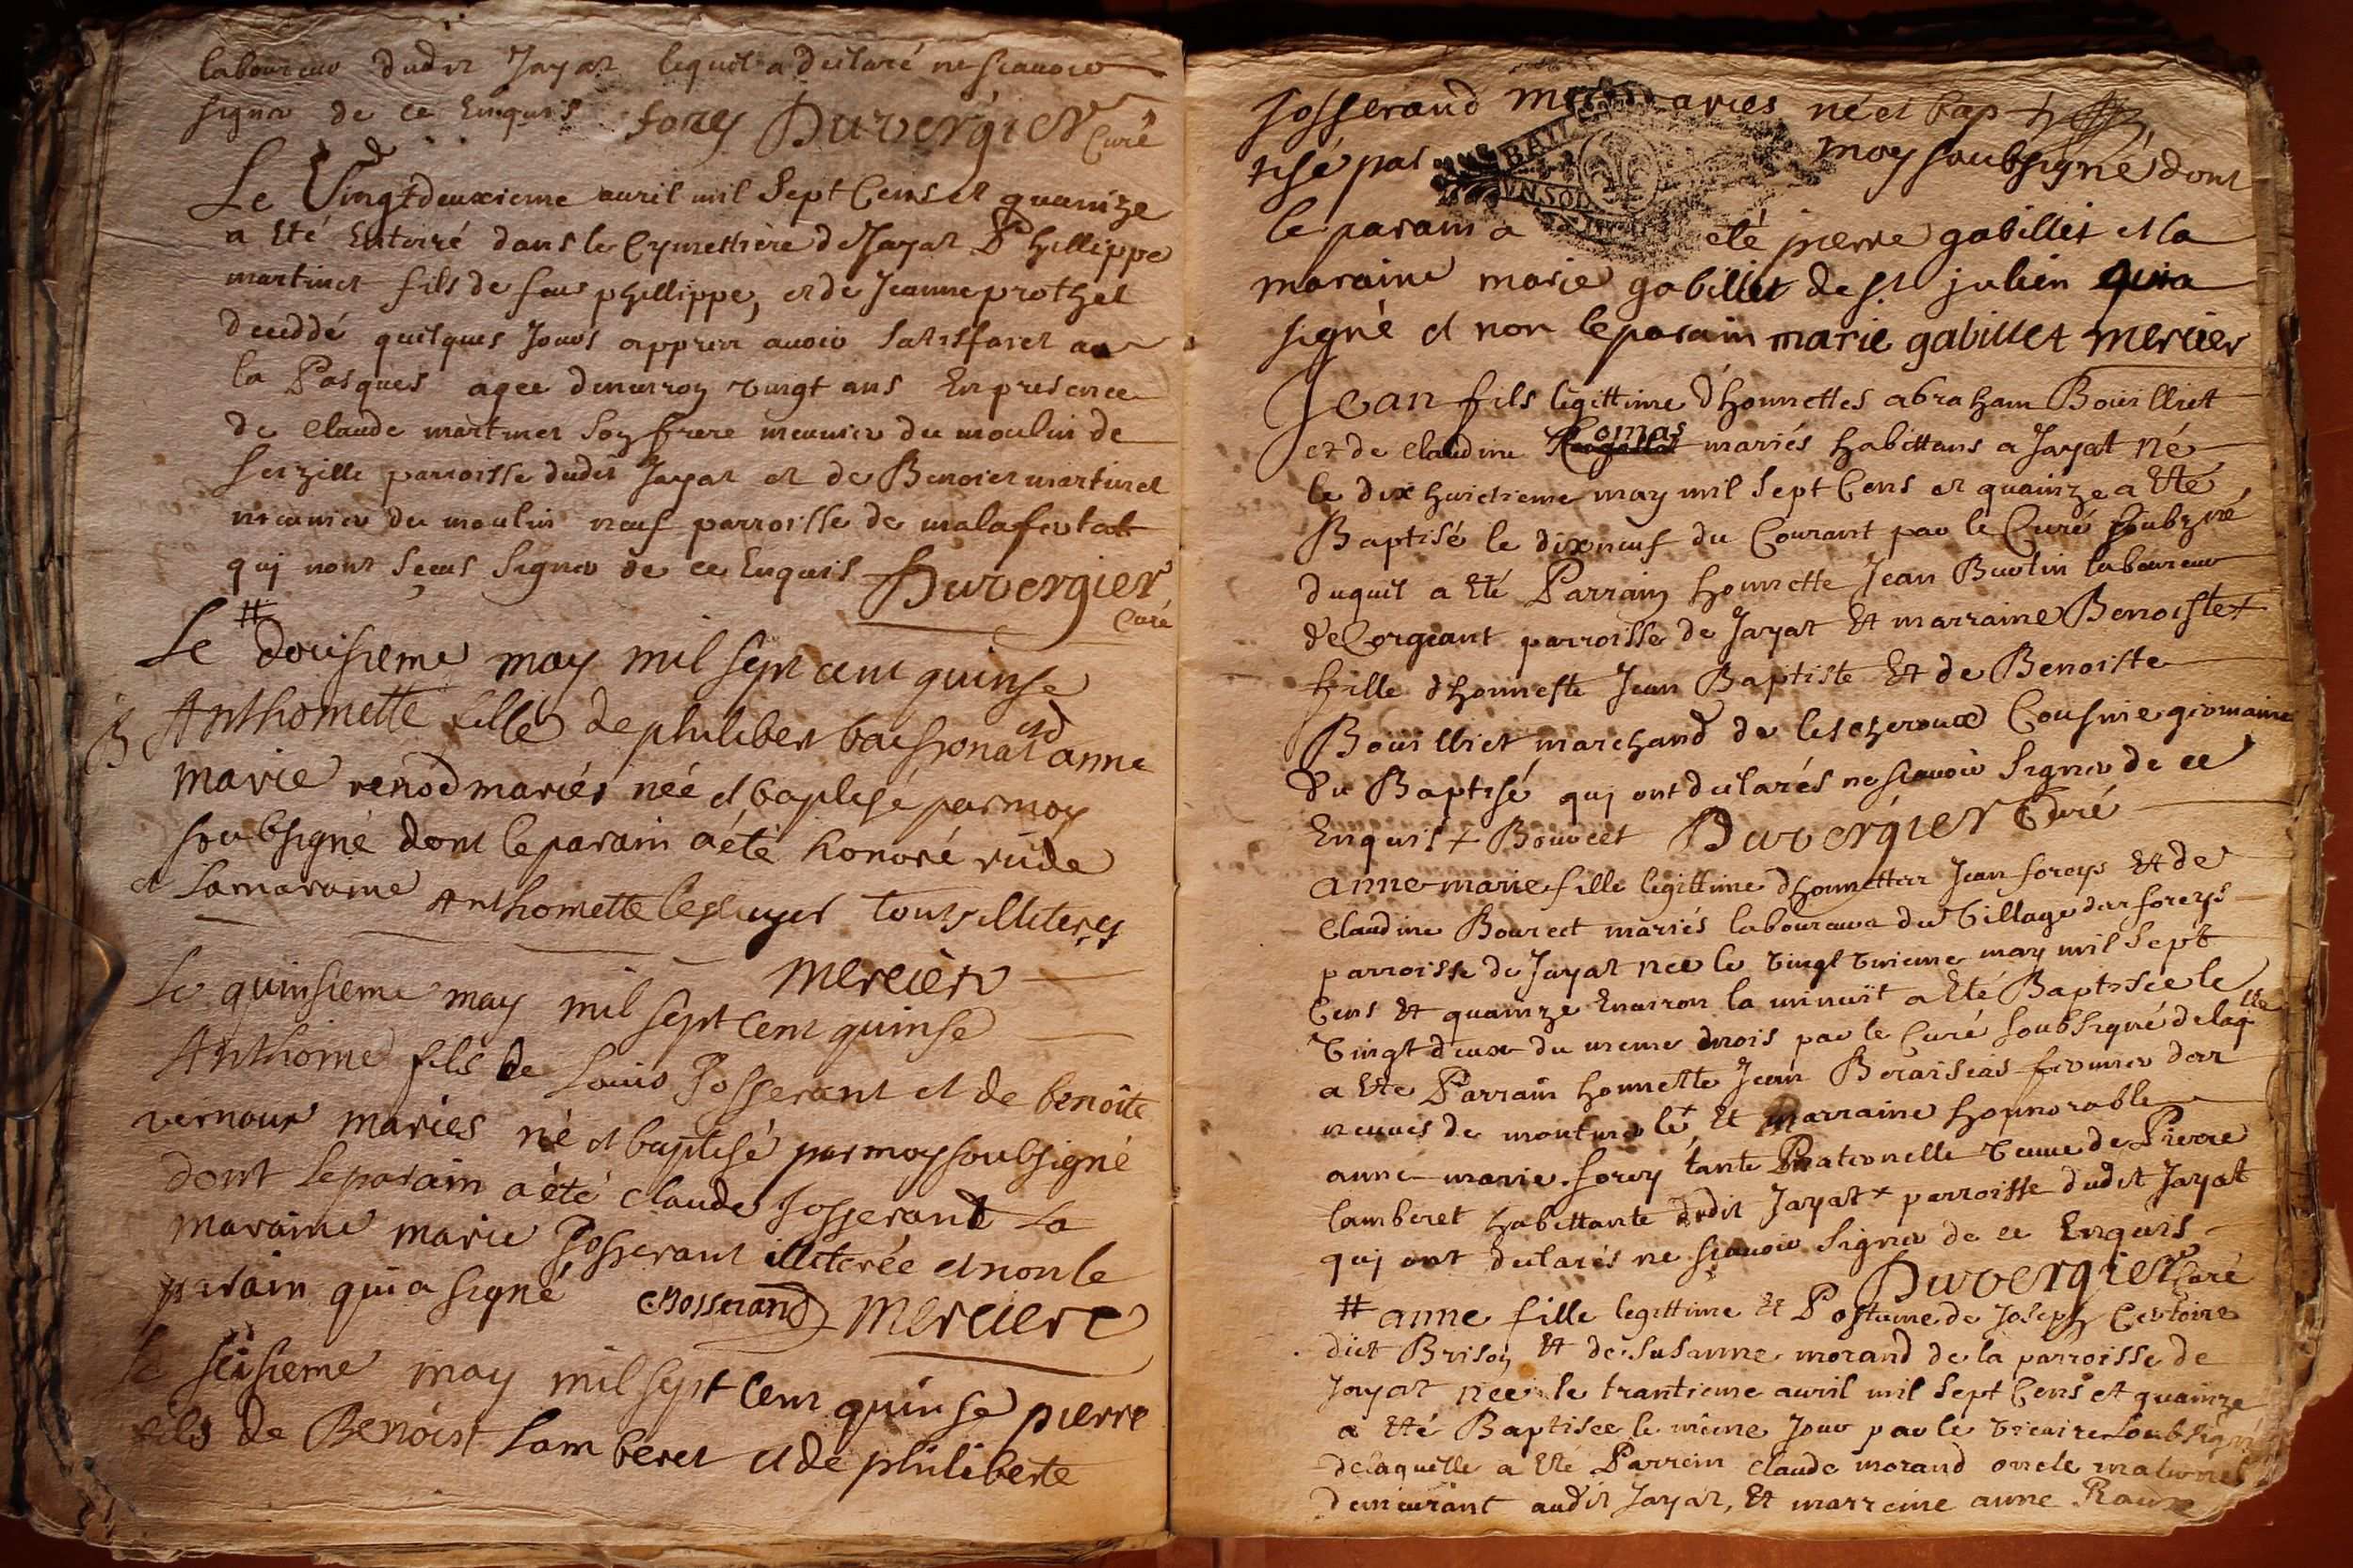 laboureur dudit Jayat lequel a declaré ne scauoir
signer de ce Enquis forey Duvergier Curé
Le Vingtdeuxieme auril mil Sept Cens et quainze
a Eté Enterré dans le Cymettiere de Jayat Phillippe
martinet fils de feu phillippe, et de Jeanne prothet
deceddé quelques Jours appres auoir satisfaict a
la Pasques agee denuiron vingt ans En presence
de Claude martinet Son frere meunier du moulin de
paroisse dudit Jayat et de Benoict martinet
meunier du moulin neuf parroisse de malafretat
qui nont sceus signer de ce Enquis Duvergier
Curé
Le # dousieme may mil sept cent quinse
B Anthomette fille de philibert baissonat et d anne
marie renod mariés née et baptisé par moy
soubsigné dont le parain a été honoré rude
et la maraine Anthomette tous illiterés
mercier
Le quinsieme may mil sept cent quinse
Anthoine fils de Louis Josserant et de benoite
vernoux maries né et baptisé par moy soubsigné
dont le parain a été claude Josserand la
maraine marie Josserant illiterée et non le
parain qui a signé CJosserand mercier
Le seisieme may mil sept cent quinse pierre
fils de Benoist Lamberet et de philiberte
Josserand mariés né et bap
tisé par moy soubsigné dont
le parain a eté pierre gabillet et la
maraine marie gabillet de st julien qui a
signé et non le parain marie gabillet mercier
Jean fils legittime d'honnettes abraham Bouilliet
et de claudine omas mariés habittans a Jayat né
le dix huictieme may mil Sept Cens et quainze a Eté
Baptisé le dixneuf du Courant par le Curé soubzné
duquel a Eté Parrain honnette Jean Buolin laboureur
de Corgeant parroisse de Jayat Et marraine Benoiste +
fille d'honneste Jean Baptiste Et de Benoiste
Bouilliet marchand de lescheroux Cousine giomaine
du Baptisé qui ont declarés ne scauoir Signer de ce
Enquis + Bouveet Duvergier Curé
anne-marie fille legittime d'honnettes Jean foreys Et de
Claudine Bouveet mariés laboureurs du Village des foreys
parroisse de Jayat née le vingt vnieme may mil Sept
Cens Et quainze Enuiron la minuit a Eté Baptisée le
vingt deux du meme mois par le Curé Soubsigné de laqlle
a Ete Parrain honneste Jean fermier des
de Et marraine honnorable
anne-marie forey tante Paternelle veuue de Pierre
lamberet habittante dudit Jayat x parroisse dudit Jayat
qui ont declarés ne scauoir Signer de ce Enquis
Duvergier Curé
# anne fille legittime Et Postume de Joseph Certoire
dict Brison Et de Susanne morand de la parroisse de
Jayat née le trantieme auril mil Sept Cens et quainze
a Eté Baptisee le mème Jour par le vicaire Soubsigné
de laquelle a Eté Parrein claude morand oncle maternel
demeurant audit Jayat, Et marreine anne